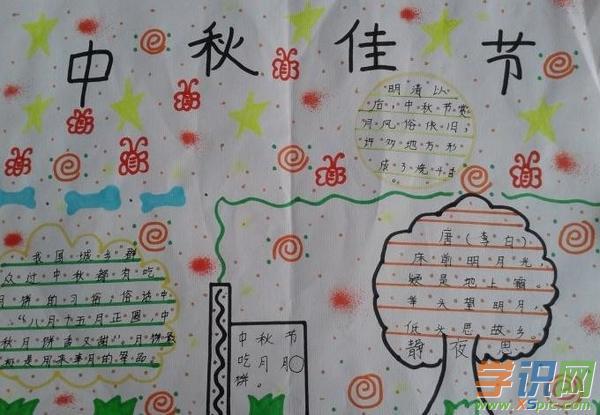 中秋佳节
明清以
后，中秋节赏
月风俗依旧；
许多地方形
成了烧斗
我国城乡群
众过中秋都有吃
月饼的习俗，俗话中
“八月十五月正圆，中
秋月饼香又甜”。月饼最
初是用来奉月的祭品。
中秋节
吃月
饼。
唐（李白）
床前明月光，
疑是地上霜。
举头望明月，
低头思故乡。
静夜思
学识网
www.XSpic.com